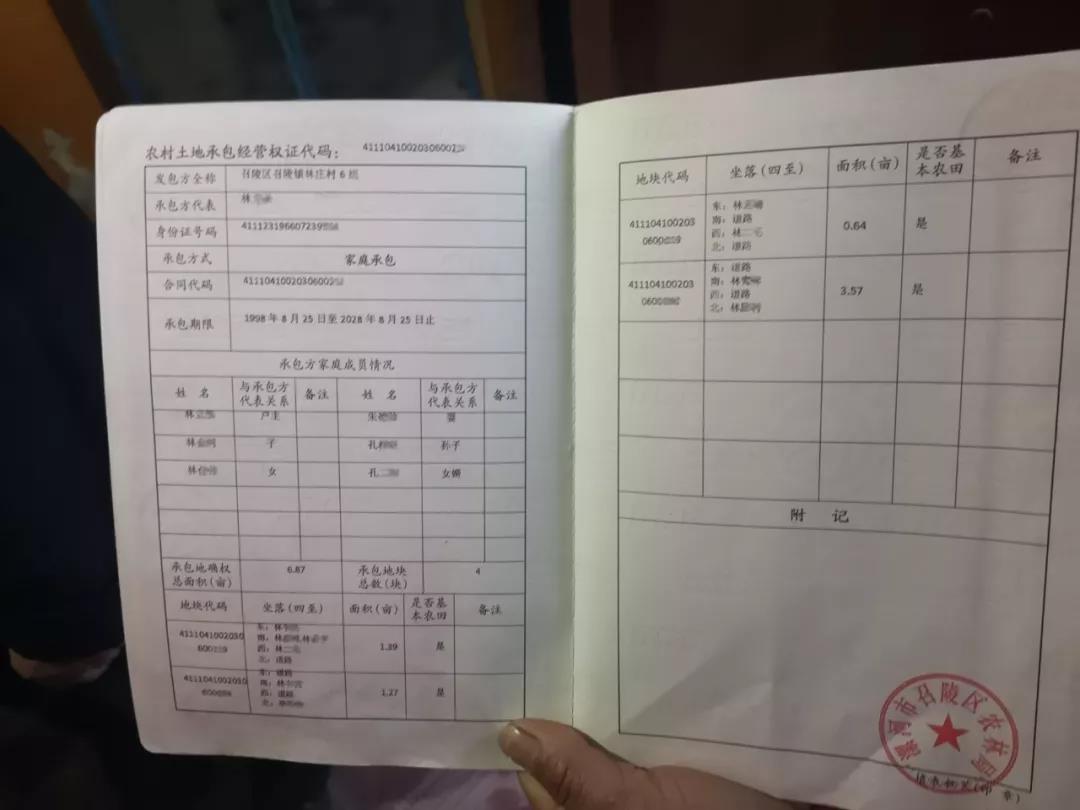 农村土地承包经营权证代码: 4111041002030600
发包方全称 召陵区召陵镇林庄村6组
承包方代表 林
身份证号码 411123196607239
承包方式 家庭承包
合同代码 4111041002030600
承包期限 1998年8月25日至2028年8月25日止
承包方家庭成员情况
姓 名 与承包方代表关系 备注 姓 名 与承包方代表关系 备注
林 户主 朱 妻
林 子 孔 孙子
林 女 孔 女婿
承包地确权总面积(亩) 6.87 承包地块总数(块) 4
地块代码 坐落(四至) 面积(亩) 是否基本农田 备注
4111041002030
600
东: 林
南: 林
西: 林
北: 道路
1.39 是
4111041002030
600
东: 道路
南: 林
西: 道路
北:
1.27 是
地块代码 坐落(四至) 面积(亩) 是否基本农田 备注
411104100203
0600
东: 林
南: 道路
西: 林
北: 道路
0.64 是
411104100203
0600
东: 道路
南: 林
西: 道路
北: 林
3.57 是
附 记
漯河市召陵区农林局